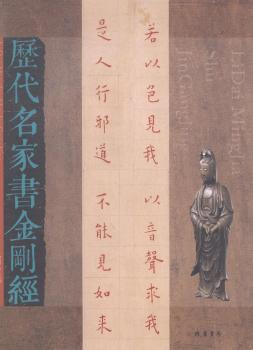 歷代名家書金剛經
若以色見我 以音聲求我
是人行邪道 不能見如来
Li Dai Ming Jia
Shu
Jin Gang Jing